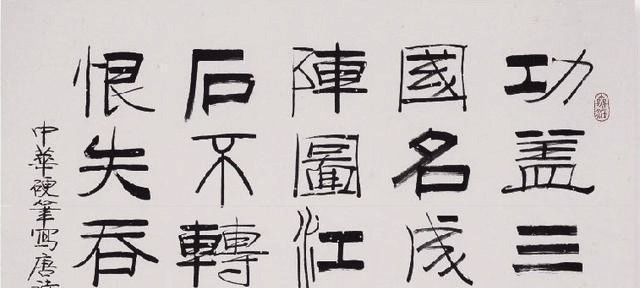 功盖三
國名成
陣圖江
石不轉
恨失吞
中華硬筆寫唐